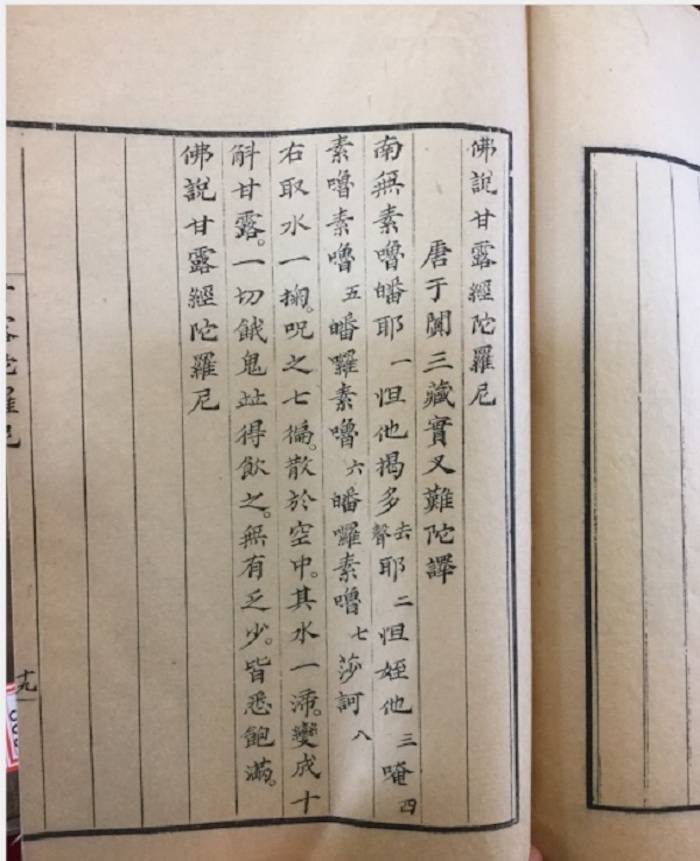 佛說甘露經陀羅尼
唐于闐三藏實叉難陀譯
南無素嚕皤耶一怛他揭多去聲耶二怛姪他三唵四
素嚕素嚕五皤囉素嚕六皤囉素嚕七莎訶八
右取水一掬。呪之七徧。散於空中。其水一渧。變成十
斛甘露。一切餓鬼並得飲之。無有乏少。皆悉飽滿。
佛說甘露經陀羅尼
十九